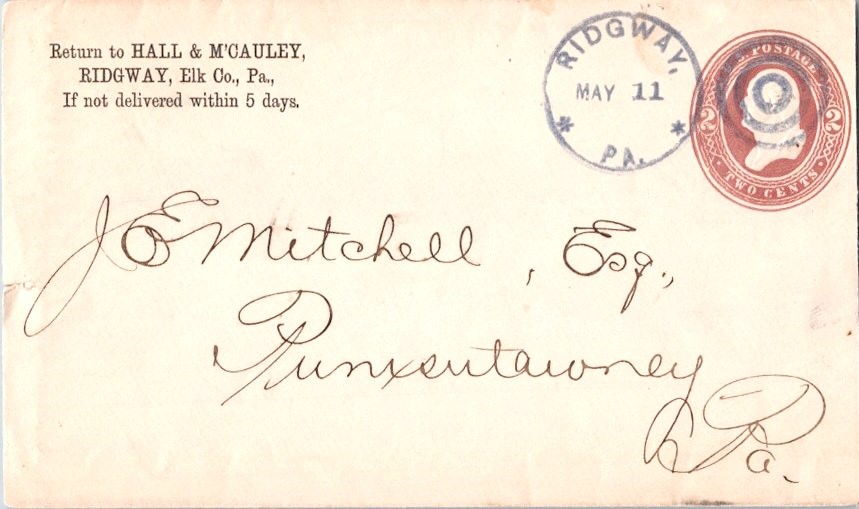 Return to HALL & M'CAULEY,
RIDGWAY, Elk Co., Pa.,
If not delivered within 5 days.
RIDGWAY,
MAY 11
PA.
U.S. POSTAGE
2 2
TWO CENTS
J E Mitchell, Esq.,
Punxsutawney
Pa.